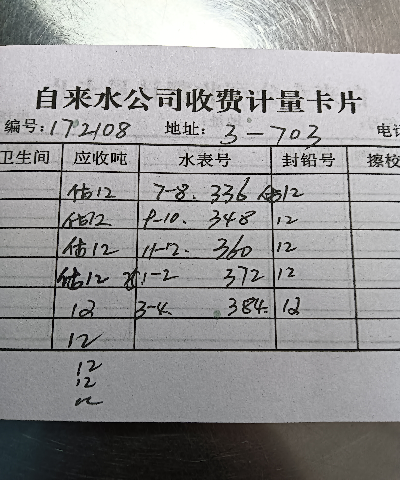 自来水公司收费计量卡片
编号:172108 地址: 3-703 电话
卫生间 应收吨 水表号 封铅号 擦校
估12 7-8. 336 估12
估12 9-10. 348 12
估12 11-12. 360 12
估12 1-2 372 12
12 3-4. 384. 12
12
12
12